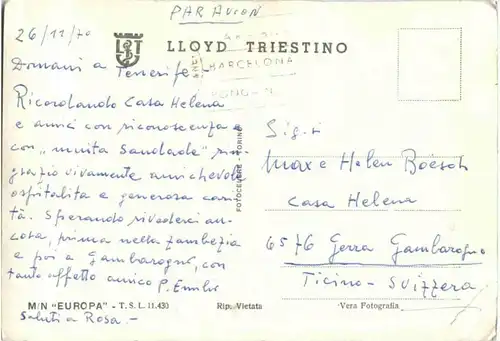 PAR AVION
26/11/70
LLOYD TRIESTINO
BARCELONA
Domani a Tenerife -
Ricordando Casa Helena
e amici con riconoscenza e
con „muita Saudade" rin-
grazio vivamente amichevole
ospitalità e generosa cari-
tà. Sperando rivederci an-
cora, prima nella Zambezia
e poi a Gambarogno, con
tanto affetto amico P. Emilio
Saluti a Rosa. -
FOTOCELERE - TORINO
Sig.ri
Max e Helen Boesch
Casa Helena
6576 Gerra Gambarogno
Ticino - Svizzera
M/N "EUROPA" - T. S. L. 11.430
Rip. Vietata
Vera Fotografia